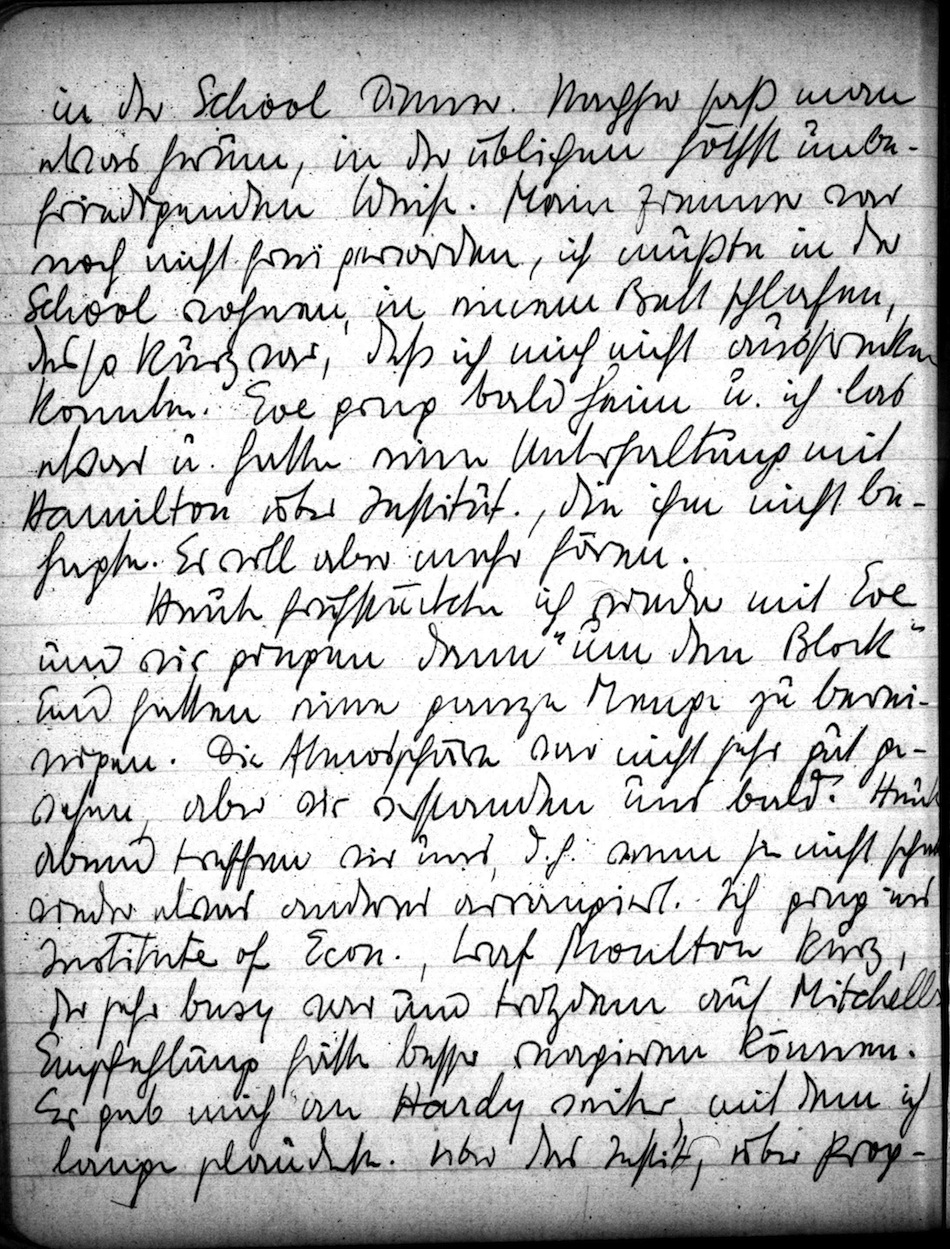 in der School Dinner. Nachher saß man
etwas herum, in der üblichen höchst unbe-
friedigenden Weise. Mein Zimmer war
noch nicht frei geworden, ich mußte in der
School wohnen, in einem Bett schlafen,
das so kurz war, daß ich mich nicht ausstrecken
konnte. Eve ging bald heim u. ich las
etwas u. hatte eine Unterhaltung mit
Hamilton über Institut., die ihm nicht be-
hagte. Er will aber mehr hören.
Heute frühstückte ich wieder mit Eve
und wir gingen dann "um den Block"
und hatten eine ganze Menge zu berei-
nigen. Die Atmosphäre war nicht sehr gut ge-
wesen, aber wir verstanden uns bald. Heute
abend treffen wir uns, d.h. wenn sie nicht schon
wieder etwas anderes arrangiert. Ich ging ins
Institute of Econ., traf Moulton kurz,
der sehr busy war und trotzdem auf Mitchells
Empfehlung hätte besser reagieren können.
Er gab mich an Hardy weiter, mit dem ich
lange plauderte. Über das Instit, über Prog-